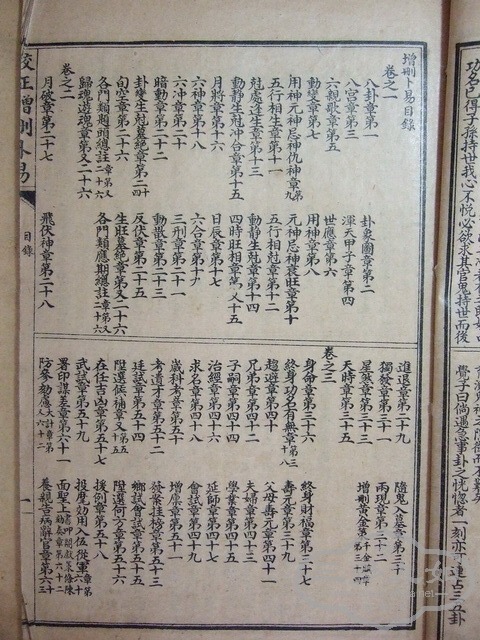 功名已得子孫持世我心不悅必欲求其官鬼持世而後
覺子曰倘遇急事卦之恍惚者一刻亦可連占三五卦
增刪卜易目錄
卷之一
八卦章第一 卦象圖章第二
八宮章第三 渾天甲子章第四
六親歌章第五 世應章第六
動變章第七 用神章第八
用神元神忌神仇神章第九 元神忌神衰旺章第十
五行相生章第十一 五行相剋章第十二
剋處逢生章第十三 動靜生剋章第十四
動靜生剋冲合章第十五 四時旺相章第又十五
月將章第十六 日辰章第十七
六神章第十八 六合章第十九
六冲章第二十 三刑章第二十一
暗動章第二十二 動散章第二十三
卦變生剋墓絕章第二十四 反伏章第二十五
旬空章第二十六 生旺墓絕章第又二十六
各門類題頭總註章第又二十六 各門類應期總註章第又二十六
歸魂遊魂章第又二十六
卷之二
月破章第二十七 飛伏神章第二十八
進退章第二十九 隨鬼入墓章第三十
獨發章第三十一 兩現章第三十二
星煞章第三十三 增刪黃金策千金賦章第三十四
天時章第三十五
卷之三
身命章第三十六 終身財福章第三十七
終身功名有無章第三十八 壽元章第三十九
趨避章第四十 父母壽元章第四十一
兄弟章第四十二 夫婦章第四十三
子嗣章第四十四 學業章第四十五
治經章第四十六 延師章第四十七
求名章第四十八 會試章第四十九
歲科考章第五十 增廩章第五十一
考遺才章第五十二 發案掛榜章第五十三
廷試章第五十四 鄉試會試章第五十五
陞選候補章又第五十五 陞選何方章第五十六
在任吉凶章第五十七 援例章第五十八
武試章第五十九 投麾効用入伍從軍章第六十
署印謀差章第六十一 面聖上書叩閽獻策條陳劾奏章第六十二
防參劾慮大計章第又六十二 養親告病辭官章第六十三
校正增刪卜易
目錄
一